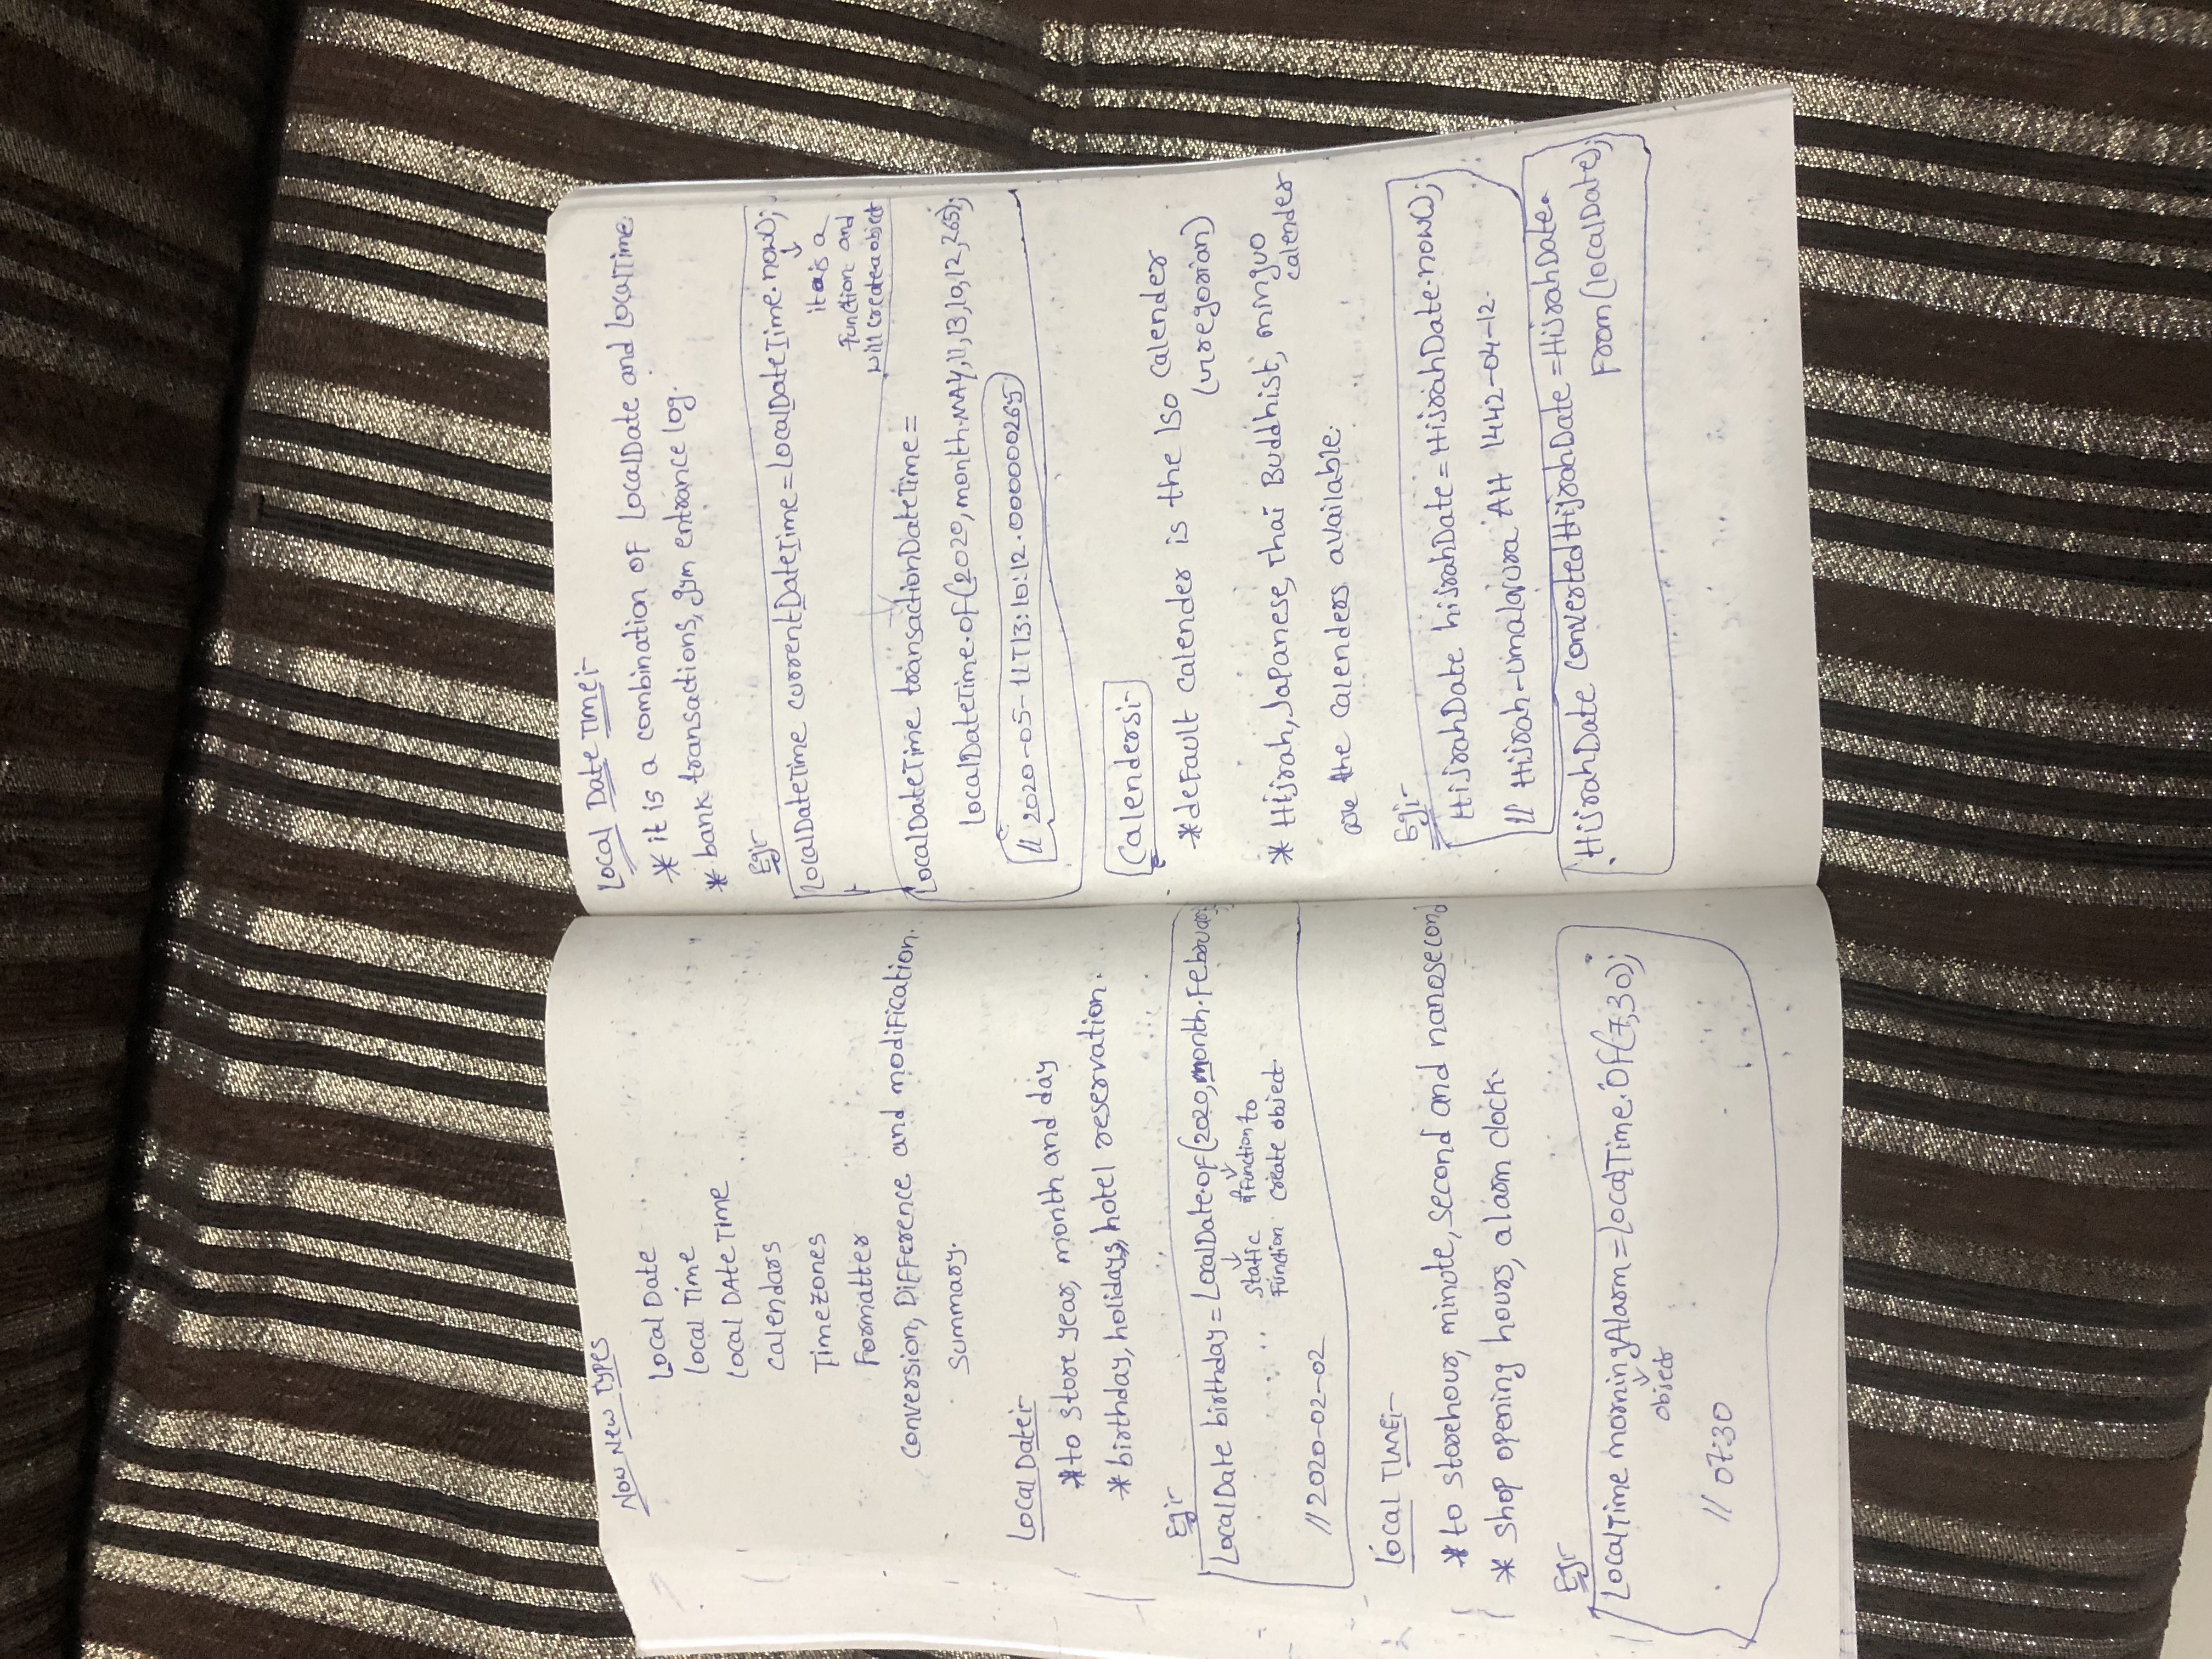 Now New Types
Local Date
Local Time
Local DAte Time
Calendars
TimeZones
Formatter
conversion, Difference and modification.
Summary.
Local Date:-
* to store year, month and day
* birthday, holidays, hotel reservation.
Eg:-
LocalDate birthday = LocalDate.of(2020, month.Februar
static function to
Function create object.
// 2020-02-02
Local Time:-
* to store hour, minute, second and nanosecond
* shop opening hours, alarm clock.
Eg:-
LocalTime morningAlarm = LocalTime.of(7,30);
object
// 07:30
Local Date Time:-
* it is a combination of LocalDate and LocalTime
* bank transactions, gym entrance log.
Eg:-
LocalDateTime currentDateTime = LocalDateTime.now();
it is a
function and
will create a object
LocalDateTime transactionDateTime =
LocalDateTime.of(2020, month.MAY, 11, 13, 10, 12, 265);
// 2020-05-11T13:10:12.000000265
Calenders:-
* default calender is the Iso calender
(Gregorian)
* Hijrah, Japanese, Thai Buddhist, minguo
calender
are the calenders available.
Eg:-
HijrahDate hijrahDate = HijrahDate.now();
// Hijrah-umalqura AH 1442-04-12.
HijrahDate convertedHijrahDate = HijrahDate.
From(localDate);